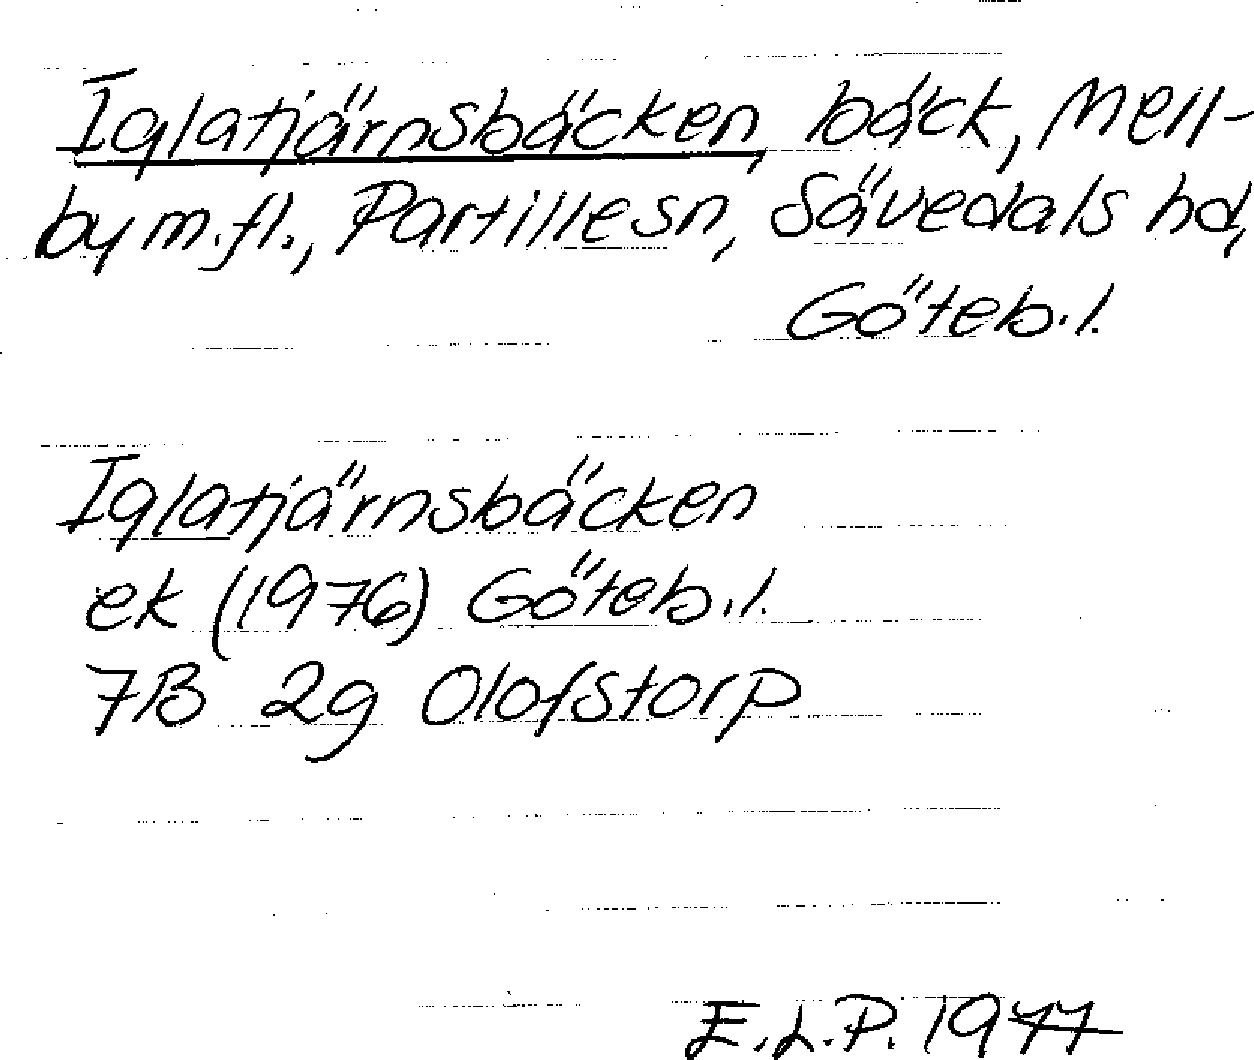 Iglatjärnsbäcken, bäck, Mell-
by m.fl., Partille sn, Sävedals hd,
Göteb.l.
Iglatjärnsbäcken
ek (1976) Göteb.l.
7B 2g Olofstorp
E.L.P. 1977